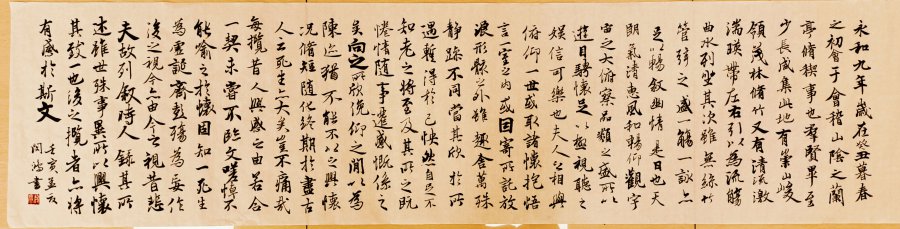 永和九年歲在癸丑暮春
之初會于會稽山陰之蘭
亭脩稧事也羣賢畢至
少長咸集此地有崇山峻
領茂林脩竹又有清流激
湍暎帶左右引以為流觴
曲水列坐其次雖無絲竹
管絃之盛一觴一詠亦
足以暢敘幽情是日也天
朗氣清惠風和暢仰觀宇
宙之大俯察品類之盛所以
遊目騁懷足以極視聽之
娛信可樂也夫人之相與
俯仰一世或取諸懷抱悟
言一室之內或因寄所託放
浪形骸之外雖趣舍萬殊
靜躁不同當其欣於所
遇暫得於己怏然自足不
知老之將至及其所之既
惓情隨事遷感慨係之
矣向之所欣俛仰之間以為
陳迹猶不能不以之興懷
況脩短隨化終期於盡古
人云死生亦大矣豈不痛哉
每攬昔人興感之由若合
一契未嘗不臨文嗟悼不
能喻之於懷固知一死生
為虛誕齊彭殤為妄作
後之視今亦由今之視昔悲
夫故列敘時人錄其所
述雖世殊事異所以興懷
其致一也後之攬者亦將
有感於斯文